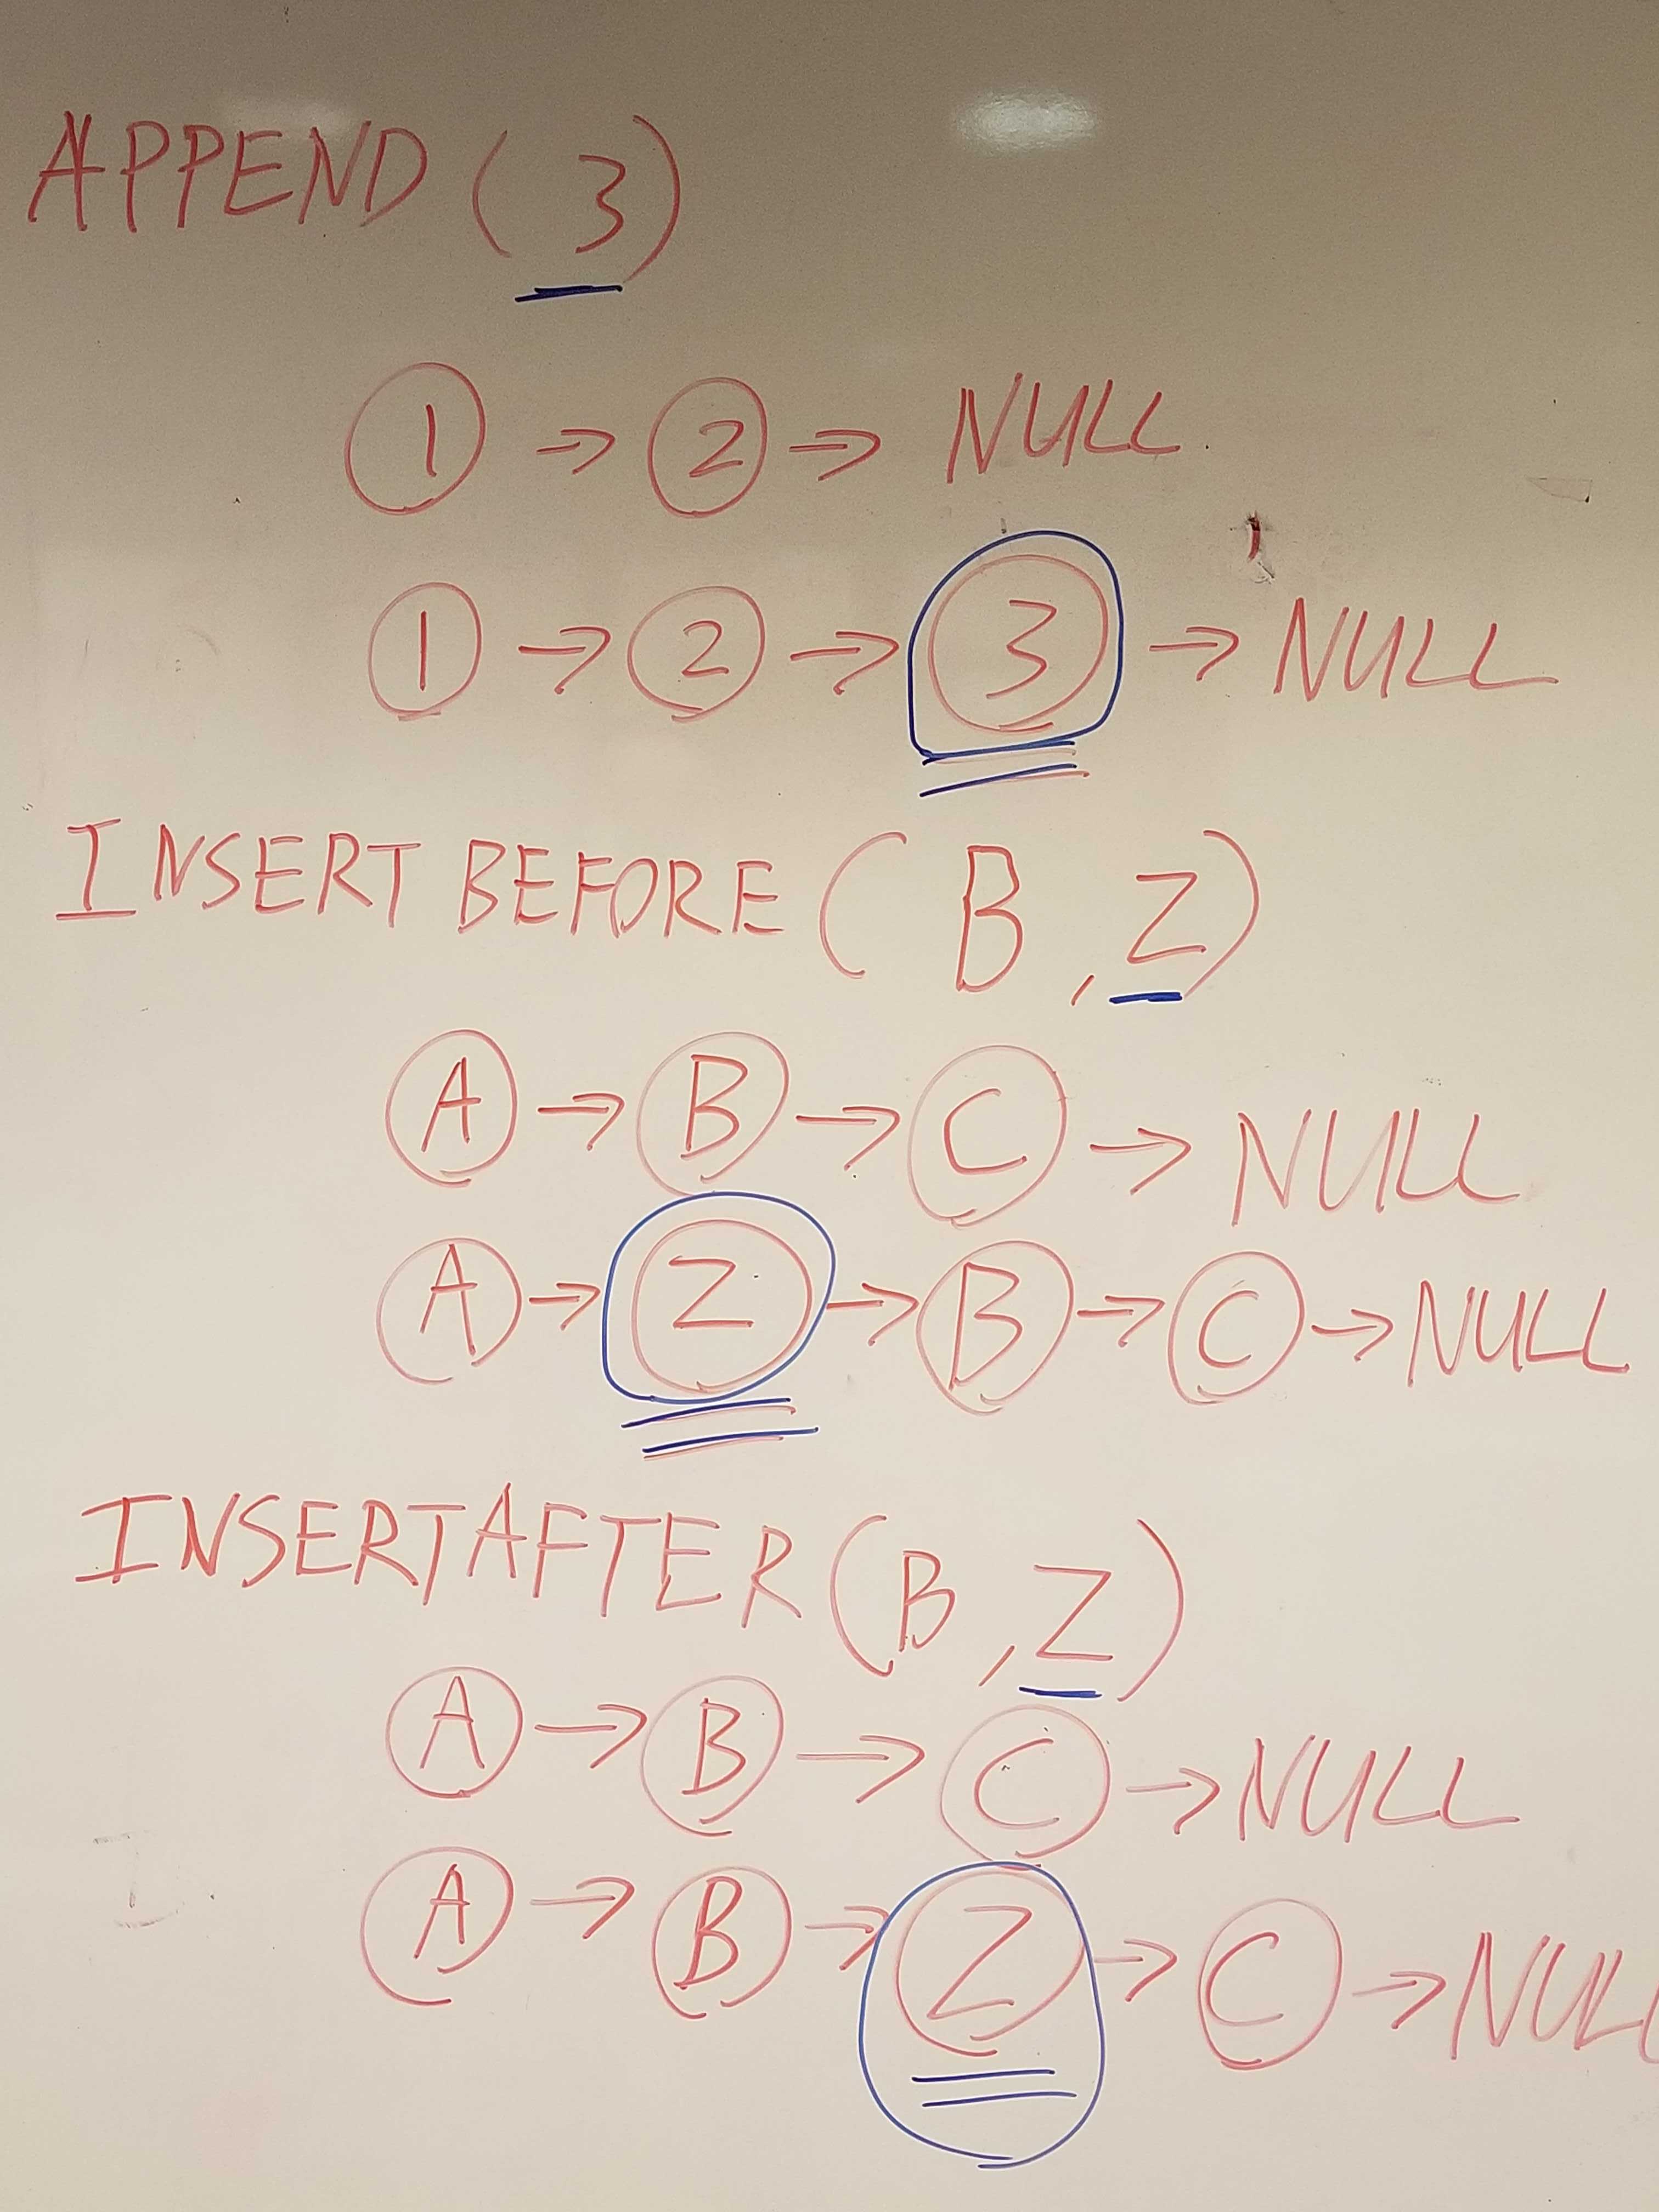 APPEND (3)
1 → 2 → NULL
1 → 2 → 3 → NULL
INSERT BEFORE (B, Z)
A → B → C → NULL
A → Z → B → C → NULL
INSERTAFTER (B, Z)
A → B → C → NULL
A → B → Z → C → NULL